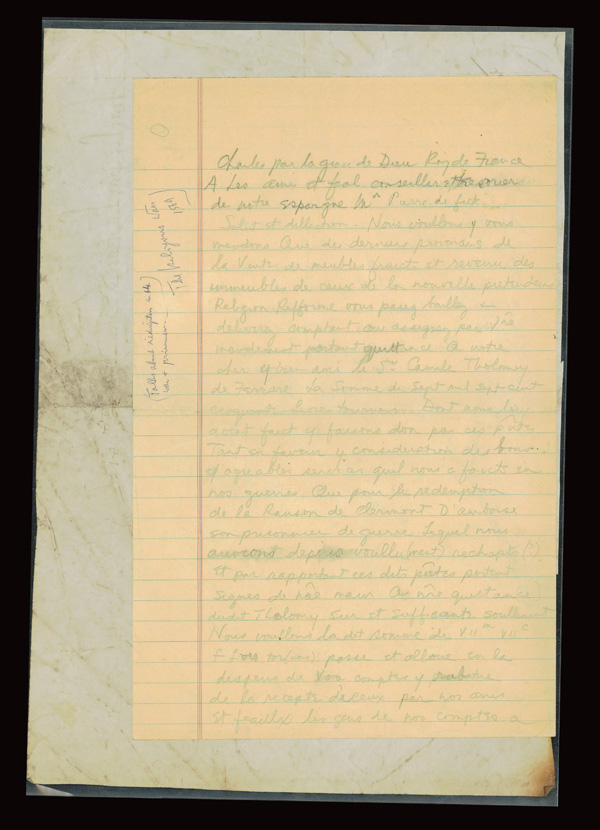 Charles par la grace de Dieu Roy de France
A Les ami et feal conseiller tresorier
de notre espargne Mr Pierre de
Salut et dilection. Nous voullons y vous
mandons Que des derniers provenans de
la Vente de meubles fruicts et revenu des
immeubles de ceux de la nouvelle pretendue
Religion Refforme vous payez bailley
delivrez comptant ou assignez par
mandement portant quittance A notre
cher et bien ami le Sr Camile Tholomy
de Ferrare La Somme de Sept mil sept cent
cinquante livres tournois Dont nous luy
avons faict y faisons don par ces
Tant en faveur y consideration des bons
et agreables services quil nous a faicts en
nos guerres Que pour le redemption
de la Ranson de Clermont D'amboise
son prisonnier de guerre Lequel nous
avons depuis voullu rachapte (?)
Et par rapportant ces dits portant
signes de main Avec quictance
dudit Tholomy sur et suffisante soullement
Nous voullons la dit somme de VIIm VIIc
passe et alloue en la
despens de vos comptes y
de la recepte deceux par nos amis
et feaulx les gens de nos comptes a
(Talks about redemption with
war + prisoner)
The Religious War
1569